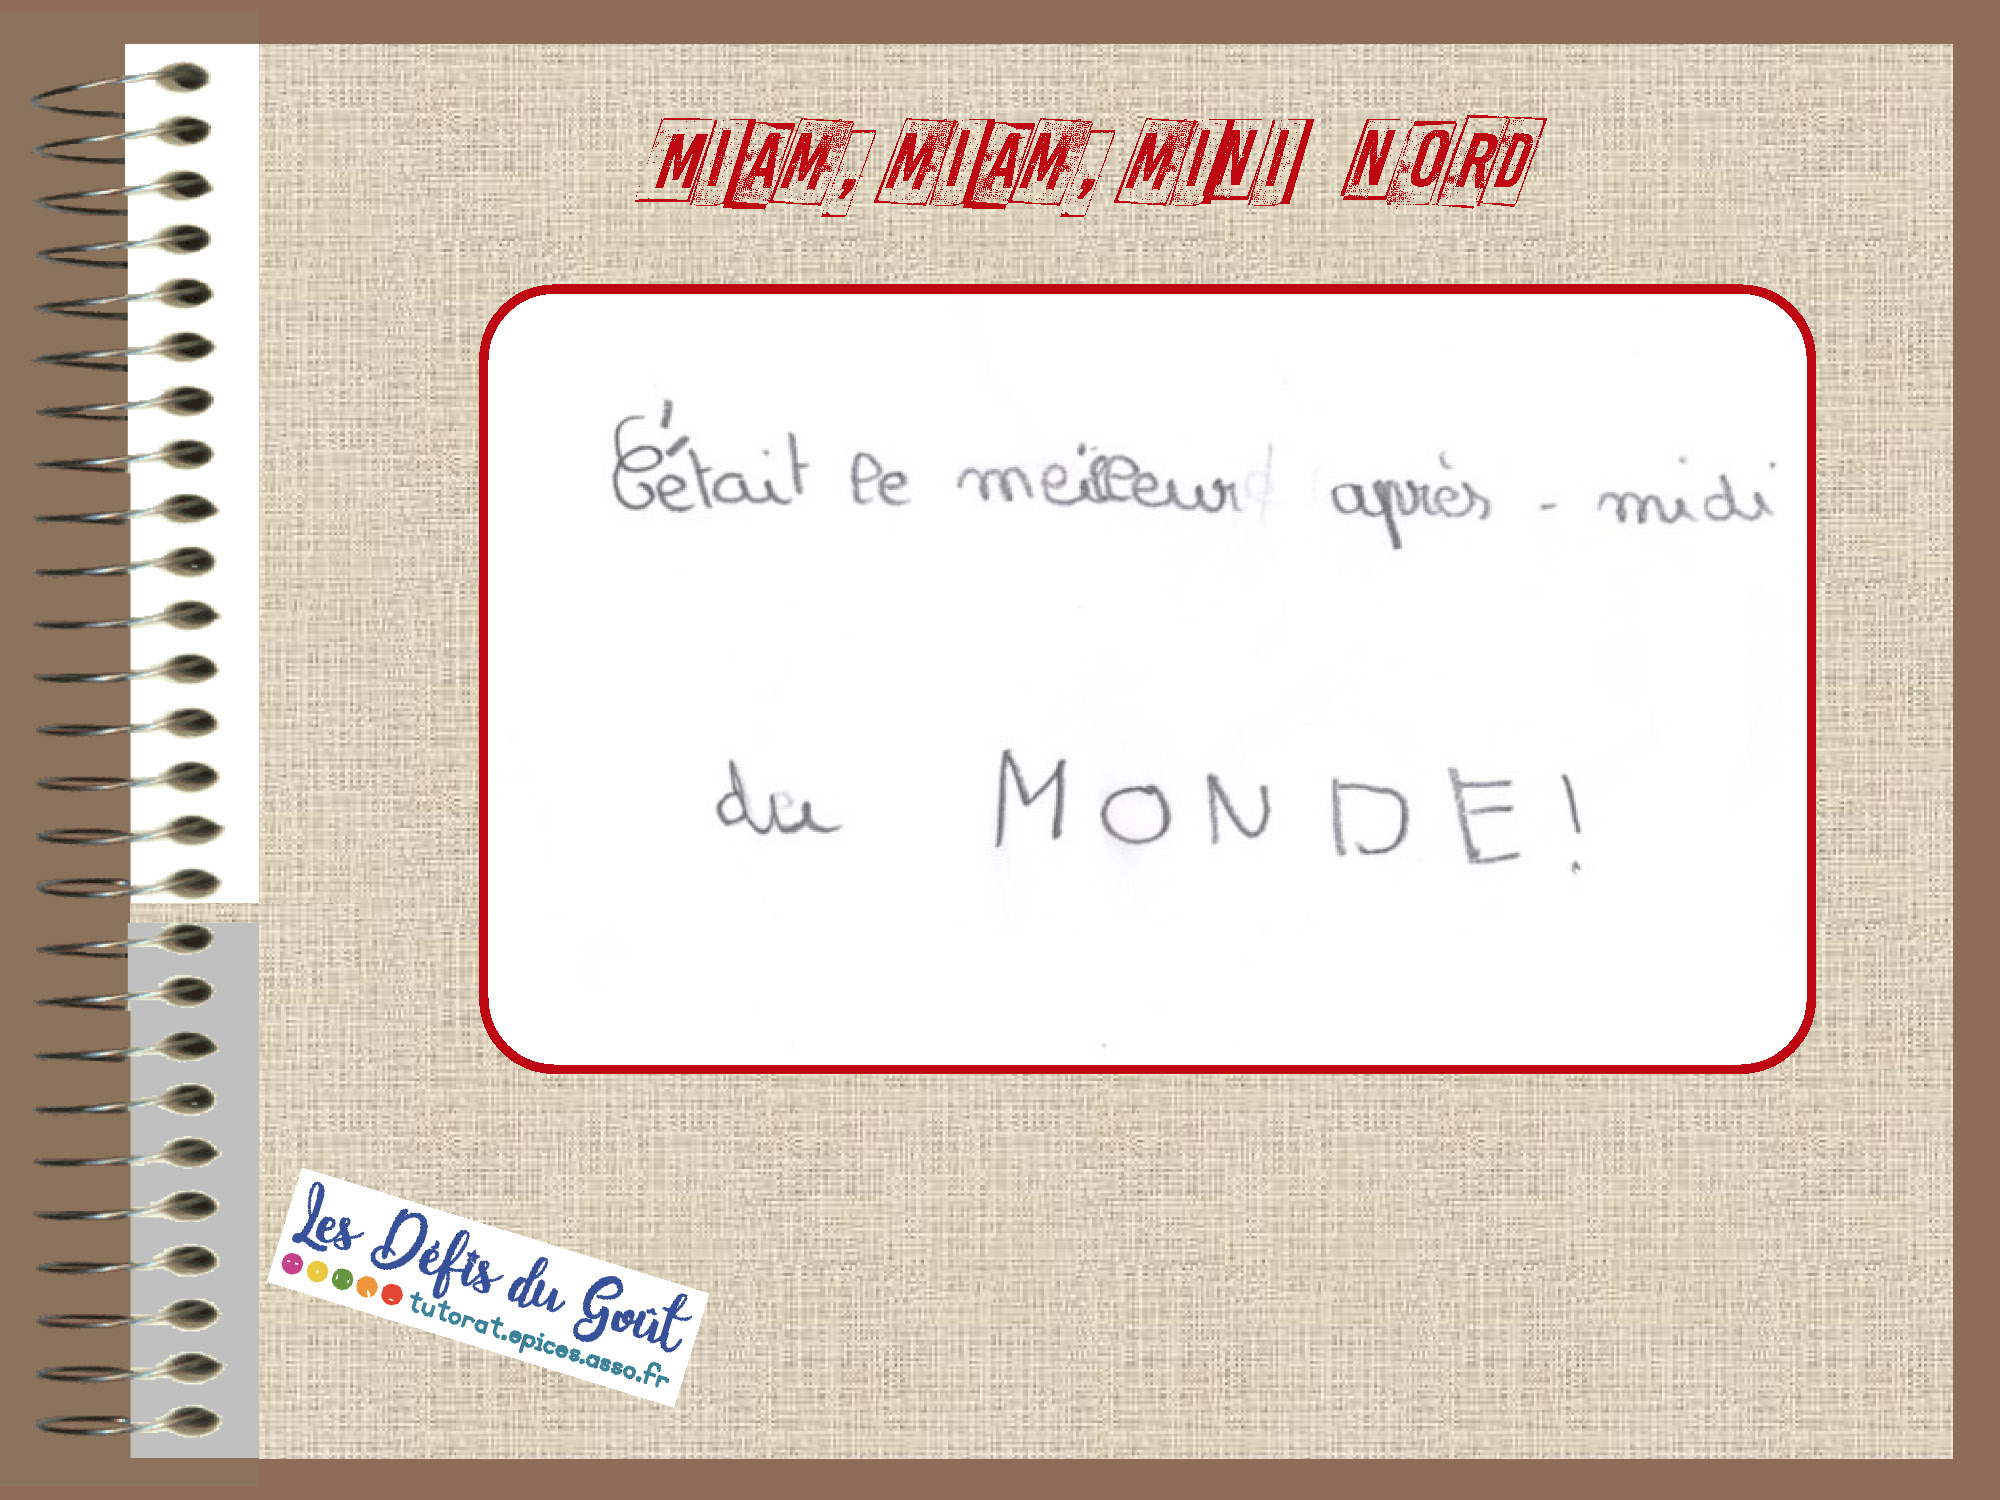 MIAM, MIAM, MINI NORD
C'était le meilleur après-midi
du MONDE!
Les Défis du Goût
tutorat.epices.asso.fr